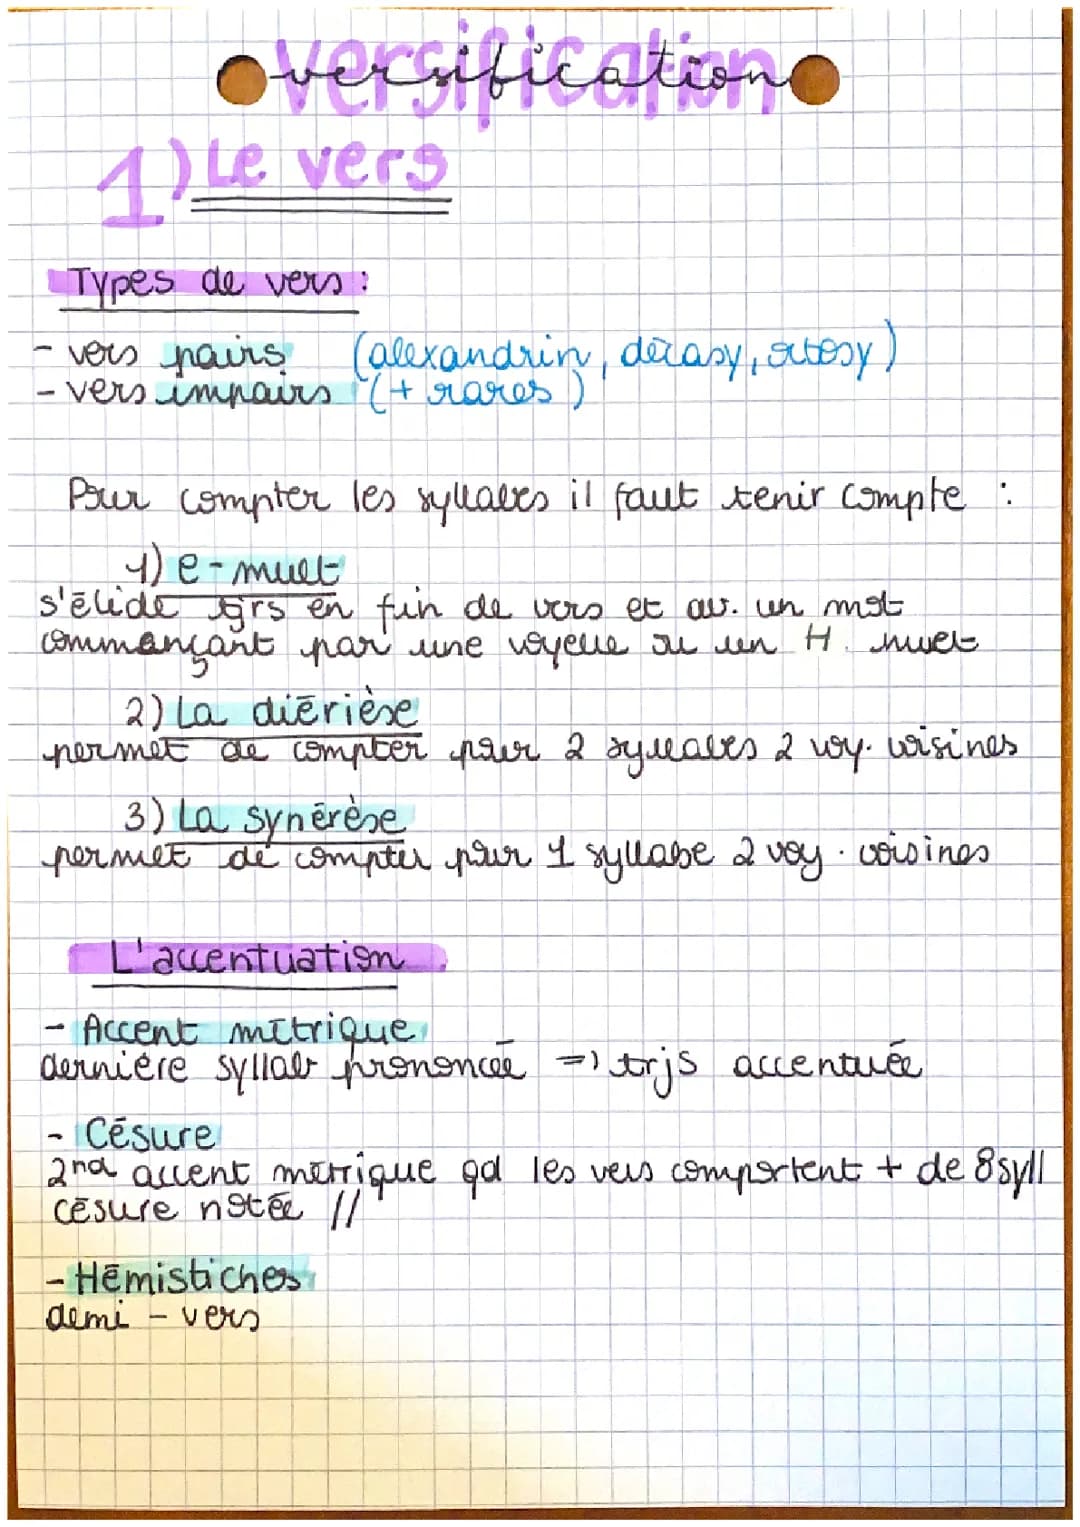 versification
1) Le vers
Types de vers :
- vers pairs (alexandrin, décasy, octosy)
- vers impairs (+ rares)
Pour compter les syllabes il faut tenir compte :
1) e-muet
s'élide tjrs en fin de vers et av. un mot
commançant par une voyelle ou un H. muet
2) La diérièse
permet de compter pour 2 syllabes 2 voy. voisines
3) La synérèse
permet de compter pour 1 syllabe 2 voy. voisines
L'accentuation
- Accent métrique
dernière syllabe prononcée => trjs accentuée
- Césure
2nd accent métrique qd les vers comportent + de 8 syll
césure notée //
- Hémistiches
demi - vers